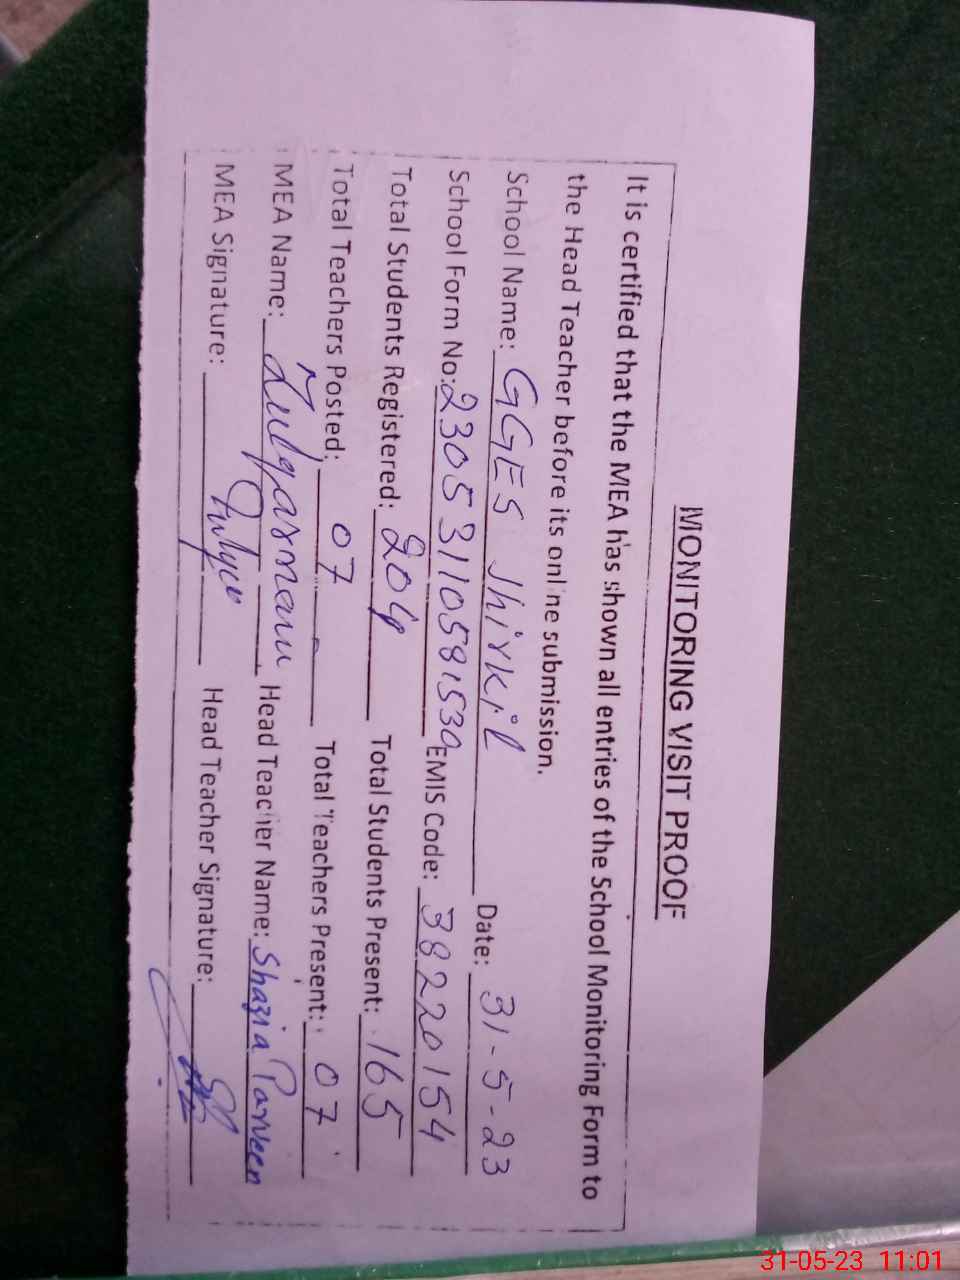 MONITORING VISIT PROOF
It is certified that the MEA has shown all entries of the School Monitoring Form to
the Head Teacher before its online submission.
School Name: GGES Jhirkil Date: 31-5-23
School Form No: 23053110581530 EMIS Code: 38220154
Total Students Registered: 204 Total Students Present: 165
Total Teachers Posted: 07 Total Teachers Present: 07
MEA Name: Head Teacher Name: Shazia Parveen
MEA Signature: Head Teacher Signature:
31-05-23 11:01